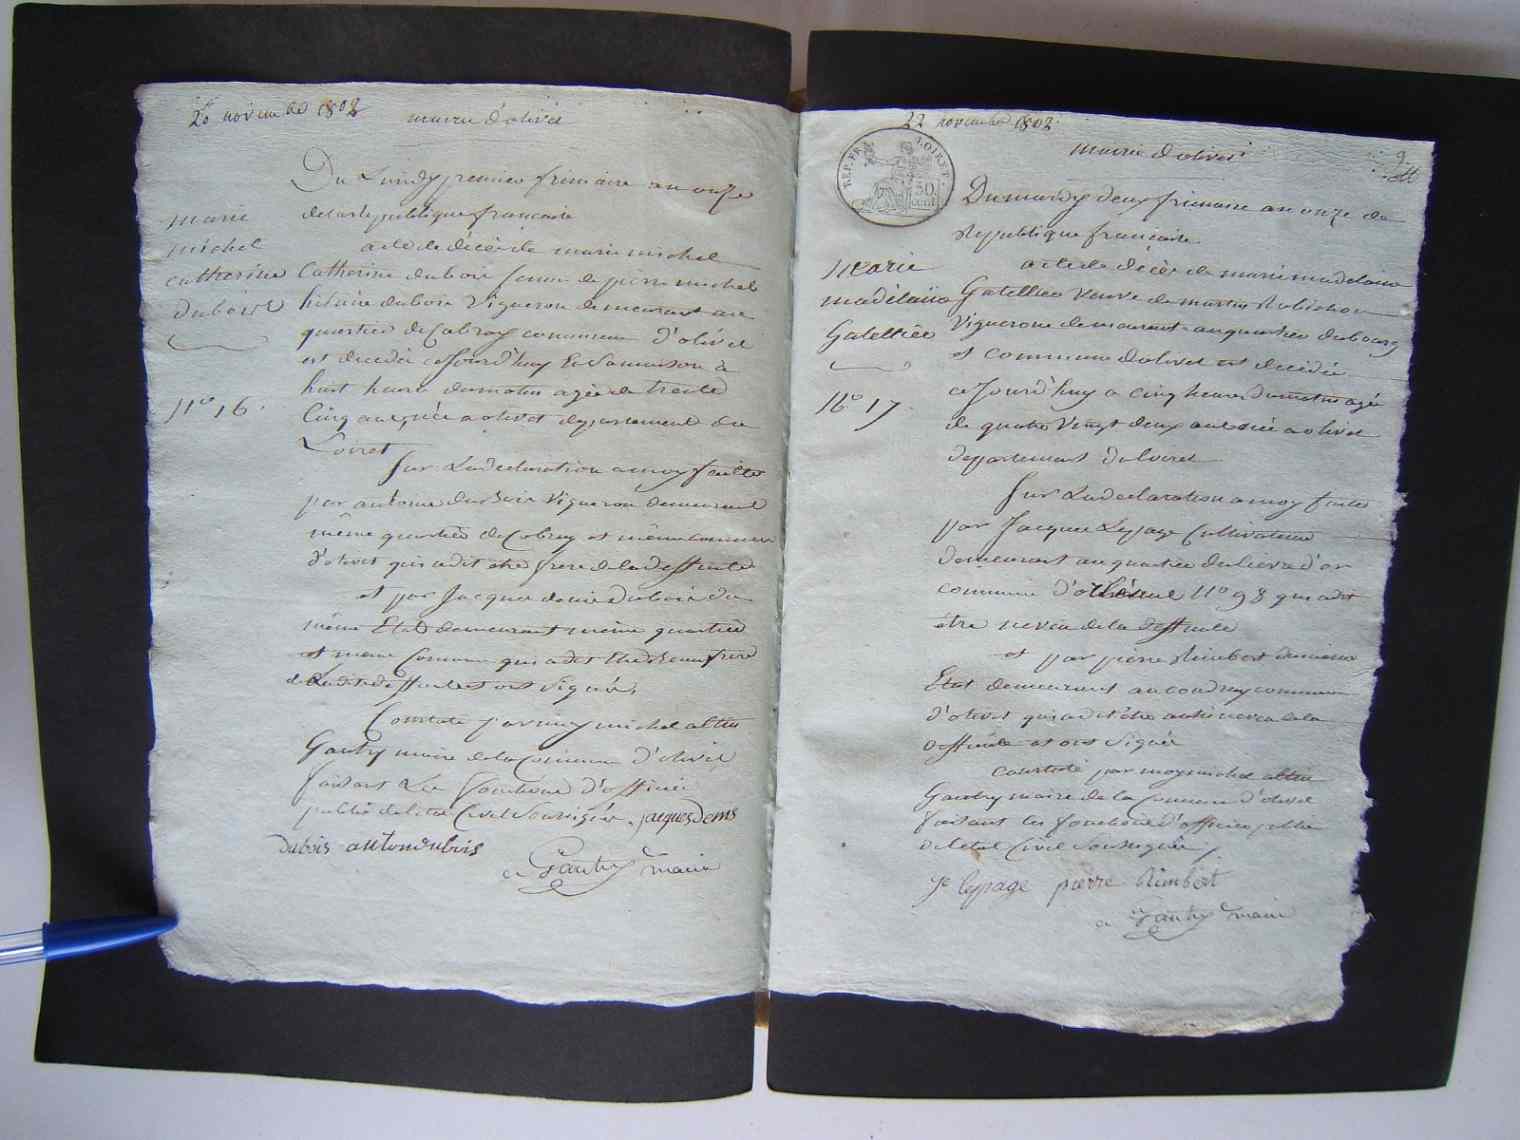 20 novembre 1802
mairie d'olivet
Du Lundy premier frimaire an onze
de la republique francaise
marie
michel
catherine
Dubois
N° 16.
acte de décès de marie michel
Catherine dubois femme de pierre michel
hilaire dubois Vigneron demeurant au
quartier de Cobray commune d'olivet
est decedée cejourd'huy En Sa maison à
huit heures du matin agée de trente
Cinq ans, née a olivet departement du
Loiret
Sur La declaration a moy faitte
par antoine dubois Vigneron demeurant
même quartier de Cobray et même commune
d'olivet qui a dit etre frere de la deffunte
et par Jacques denis dubois du
même Etat demeurant même quartier
et même Commune qui a dit etre Beaufrere
de Ladite deffunte et ont Signés,
Constaté par moy michel
Gautry maire de la Commune d'olivet
faisant Les fonctions d'officier
public de l'etat Civil Soussigné. jacques denis
Dubois anton dubois
Gautry maire
22 novembre 1802
mairie d'olivet
REP. FRA. LOIRET
50
cent
9
Du mardy deux frimaire an onze de
Republique francaise
Marie
madelaine
Gatelliée
N° 17.
acte de décès de marie madelaine
Gatelliée veuve de martin Robichon
Vigneronne demeurant au quartier du bourg
et commune d'olivet est decedée
ce Jourd'huy a Cinq heures du matin agée
de quatre Vingt deux ans née a olivet
departement du loiret
Sur La declaration a moy faitte
par Jacques Lepage Cultivateur
demeurant au quartier du lievre d'or
commune d' N° 98 qui a dit
être neveu de la deffunte
et par pierre Rimbert du même
Etat demeurant au coudray commune
d'olivet qui a dit etre aussi neveu de la
deffunte et ont Signé
Constaté par moy michel
Gautry maire de la Commune d'olivet
faisant les fonctions d'officier public
de l'etat Civil Soussigné,
Je lepage pierre Rimbert
Gautry maire